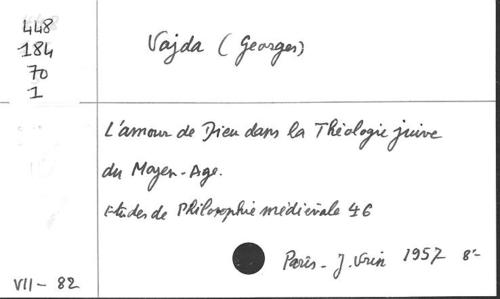 448
184
70
1
Vajda (Georges)
L'amour de Dieu dans la Théologie juive
du Moyen-Age.
Etudes de Philosophie médiévale 46
Paris - J. Vrin 1957 8°-
VII - 82